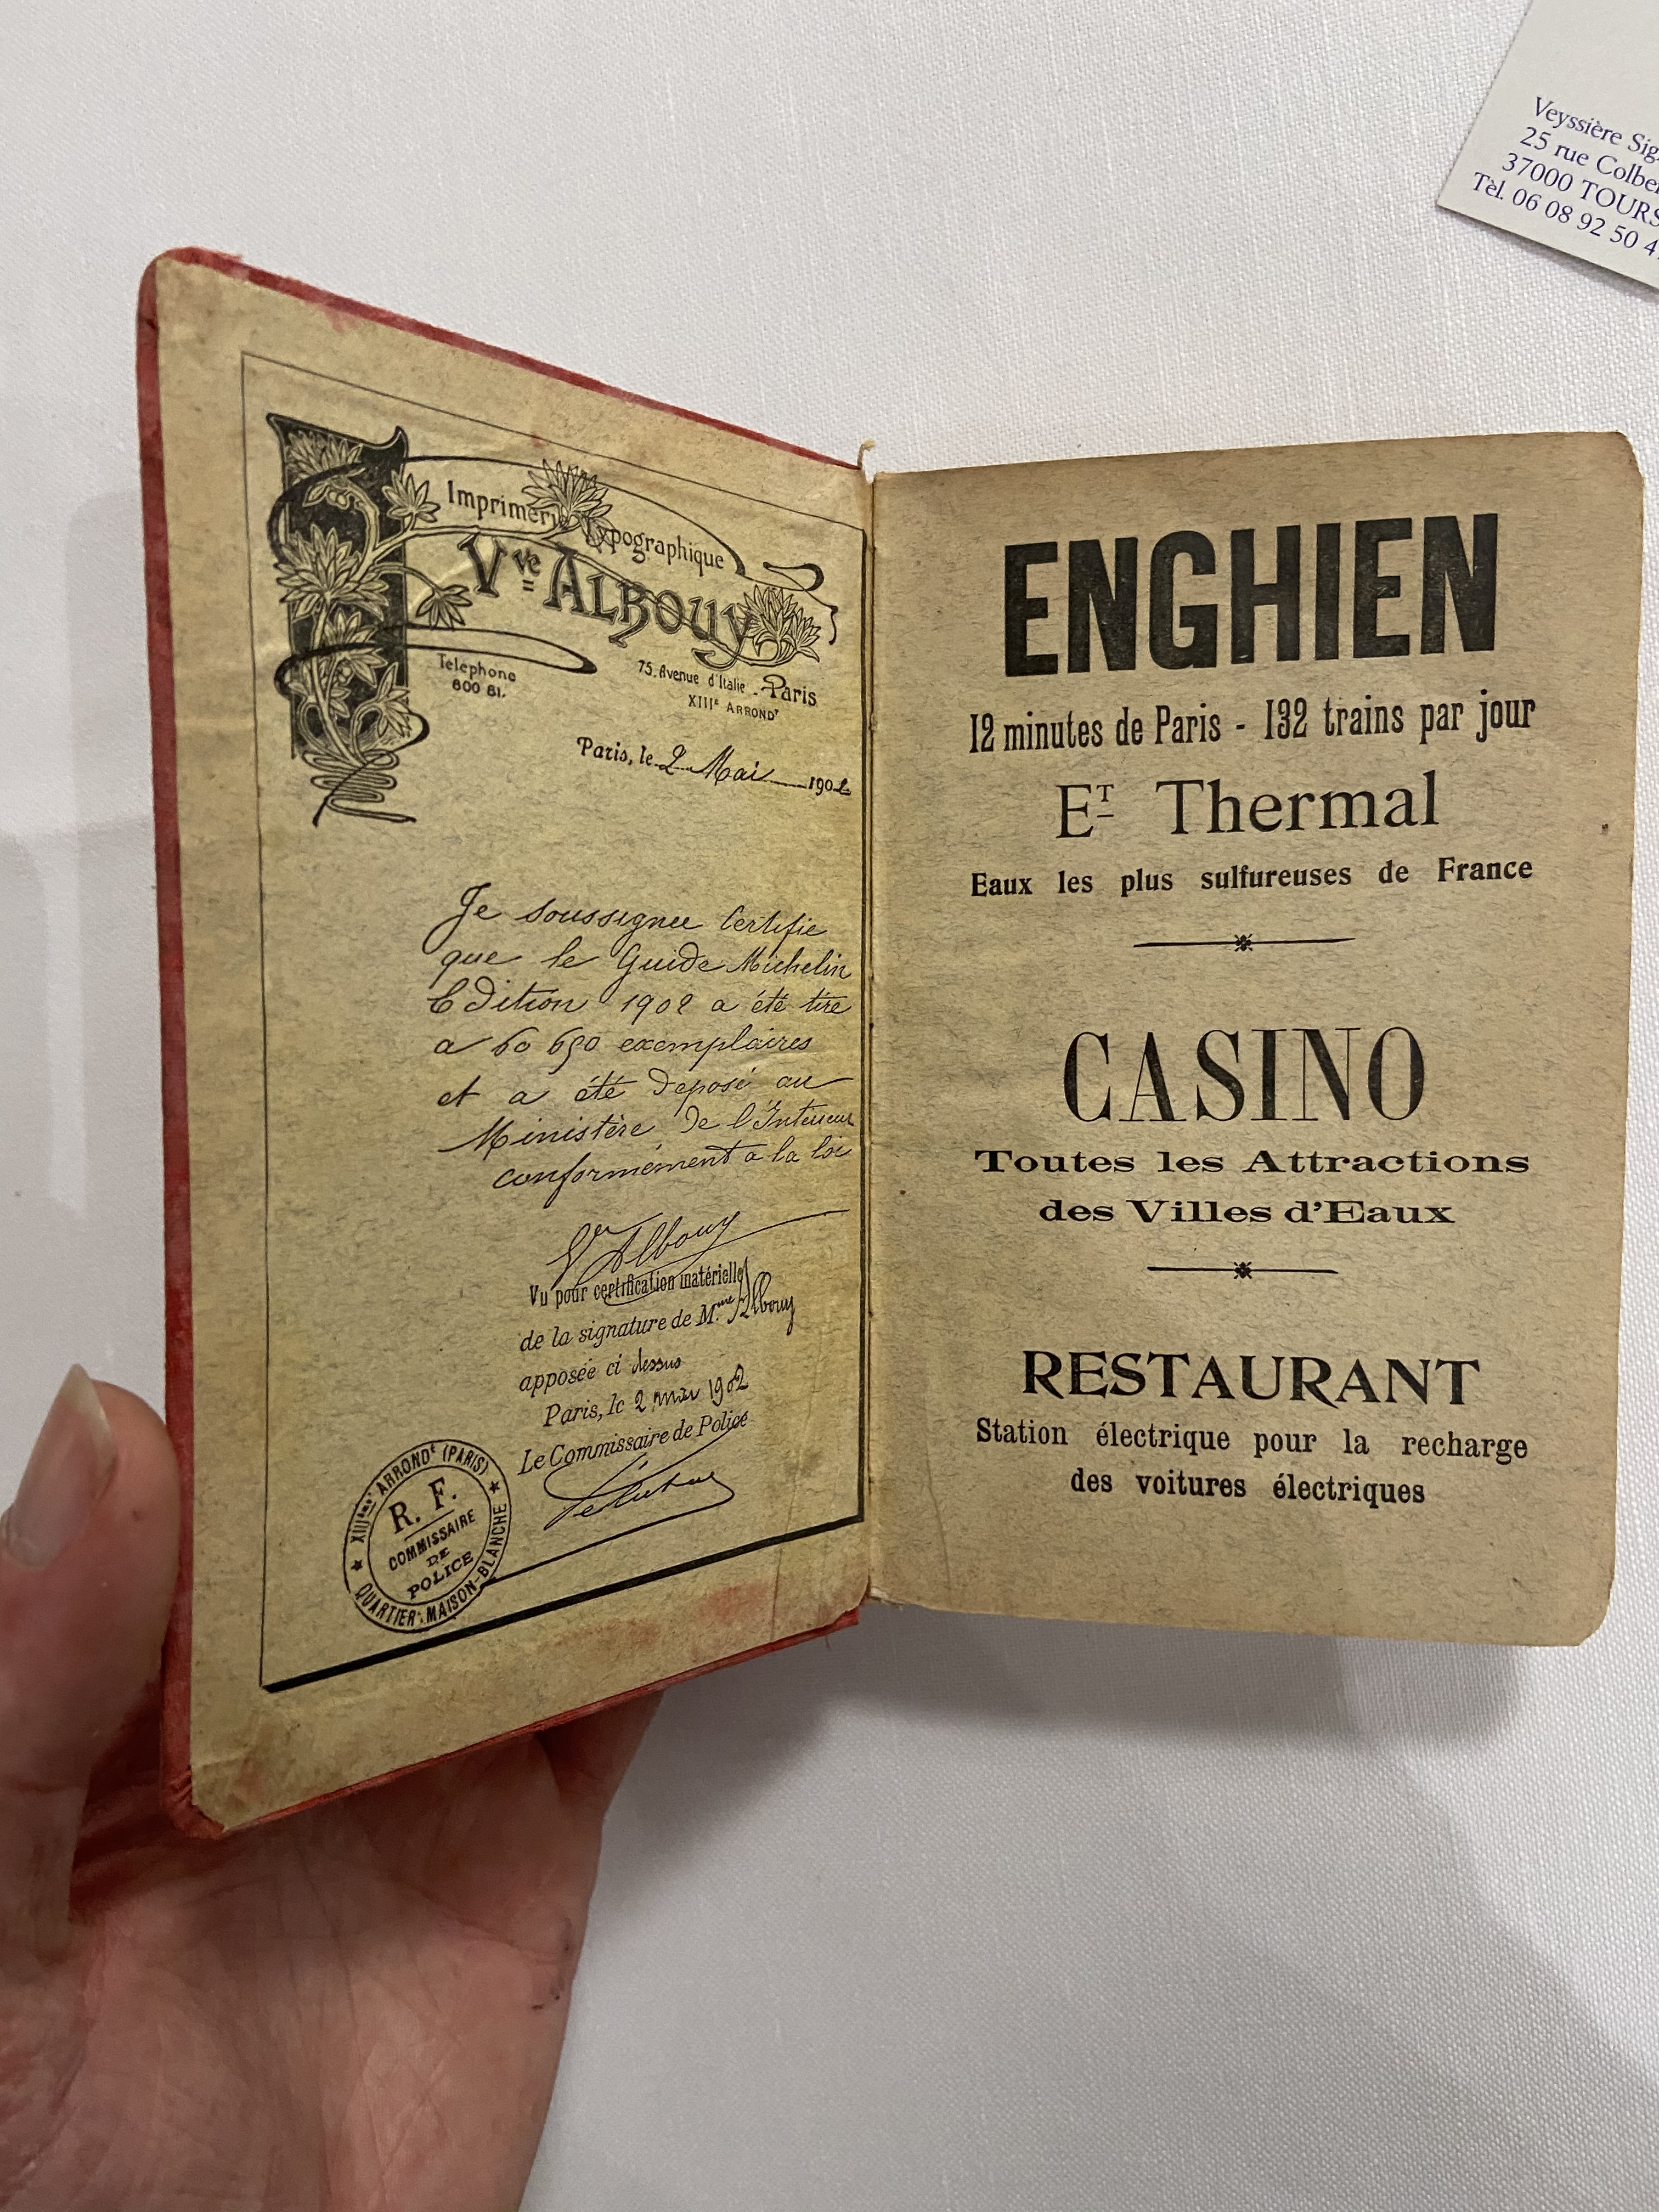 Imprimerie Typographique
Vve Albouy
Telephone
800 81.
75. Avenue d'Italie - Paris
XIIIe Arrondt
Paris, le 2 Mai 1902
Je soussignee Certifie
que le Guide Michelin
Edition 1902 a été tire
a 60 650 exemplaires
et a été deposé au
Ministère de l'Interieur
conformément a la loi
Ve Albouy
Vu pour certification matérielle
de la signature de Mme Albouy
apposée ci dessus
Paris, le 2 mai 1902
Le Commissaire de Police
XIIIème ARRONDt (PARIS)
R. F.
COMMISSAIRE
DE
POLICE
QUARTIER MAISON-BLANCHE
ENGHIEN
12 minutes de Paris - 132 trains par jour
ET Thermal
Eaux les plus sulfureuses de France
CASINO
Toutes les Attractions
des Villes d'Eaux
RESTAURANT
Station électrique pour la recharge
des voitures électriques
Veyssière
25 rue
37000 TOURS
Tèl. 06 08 92 50